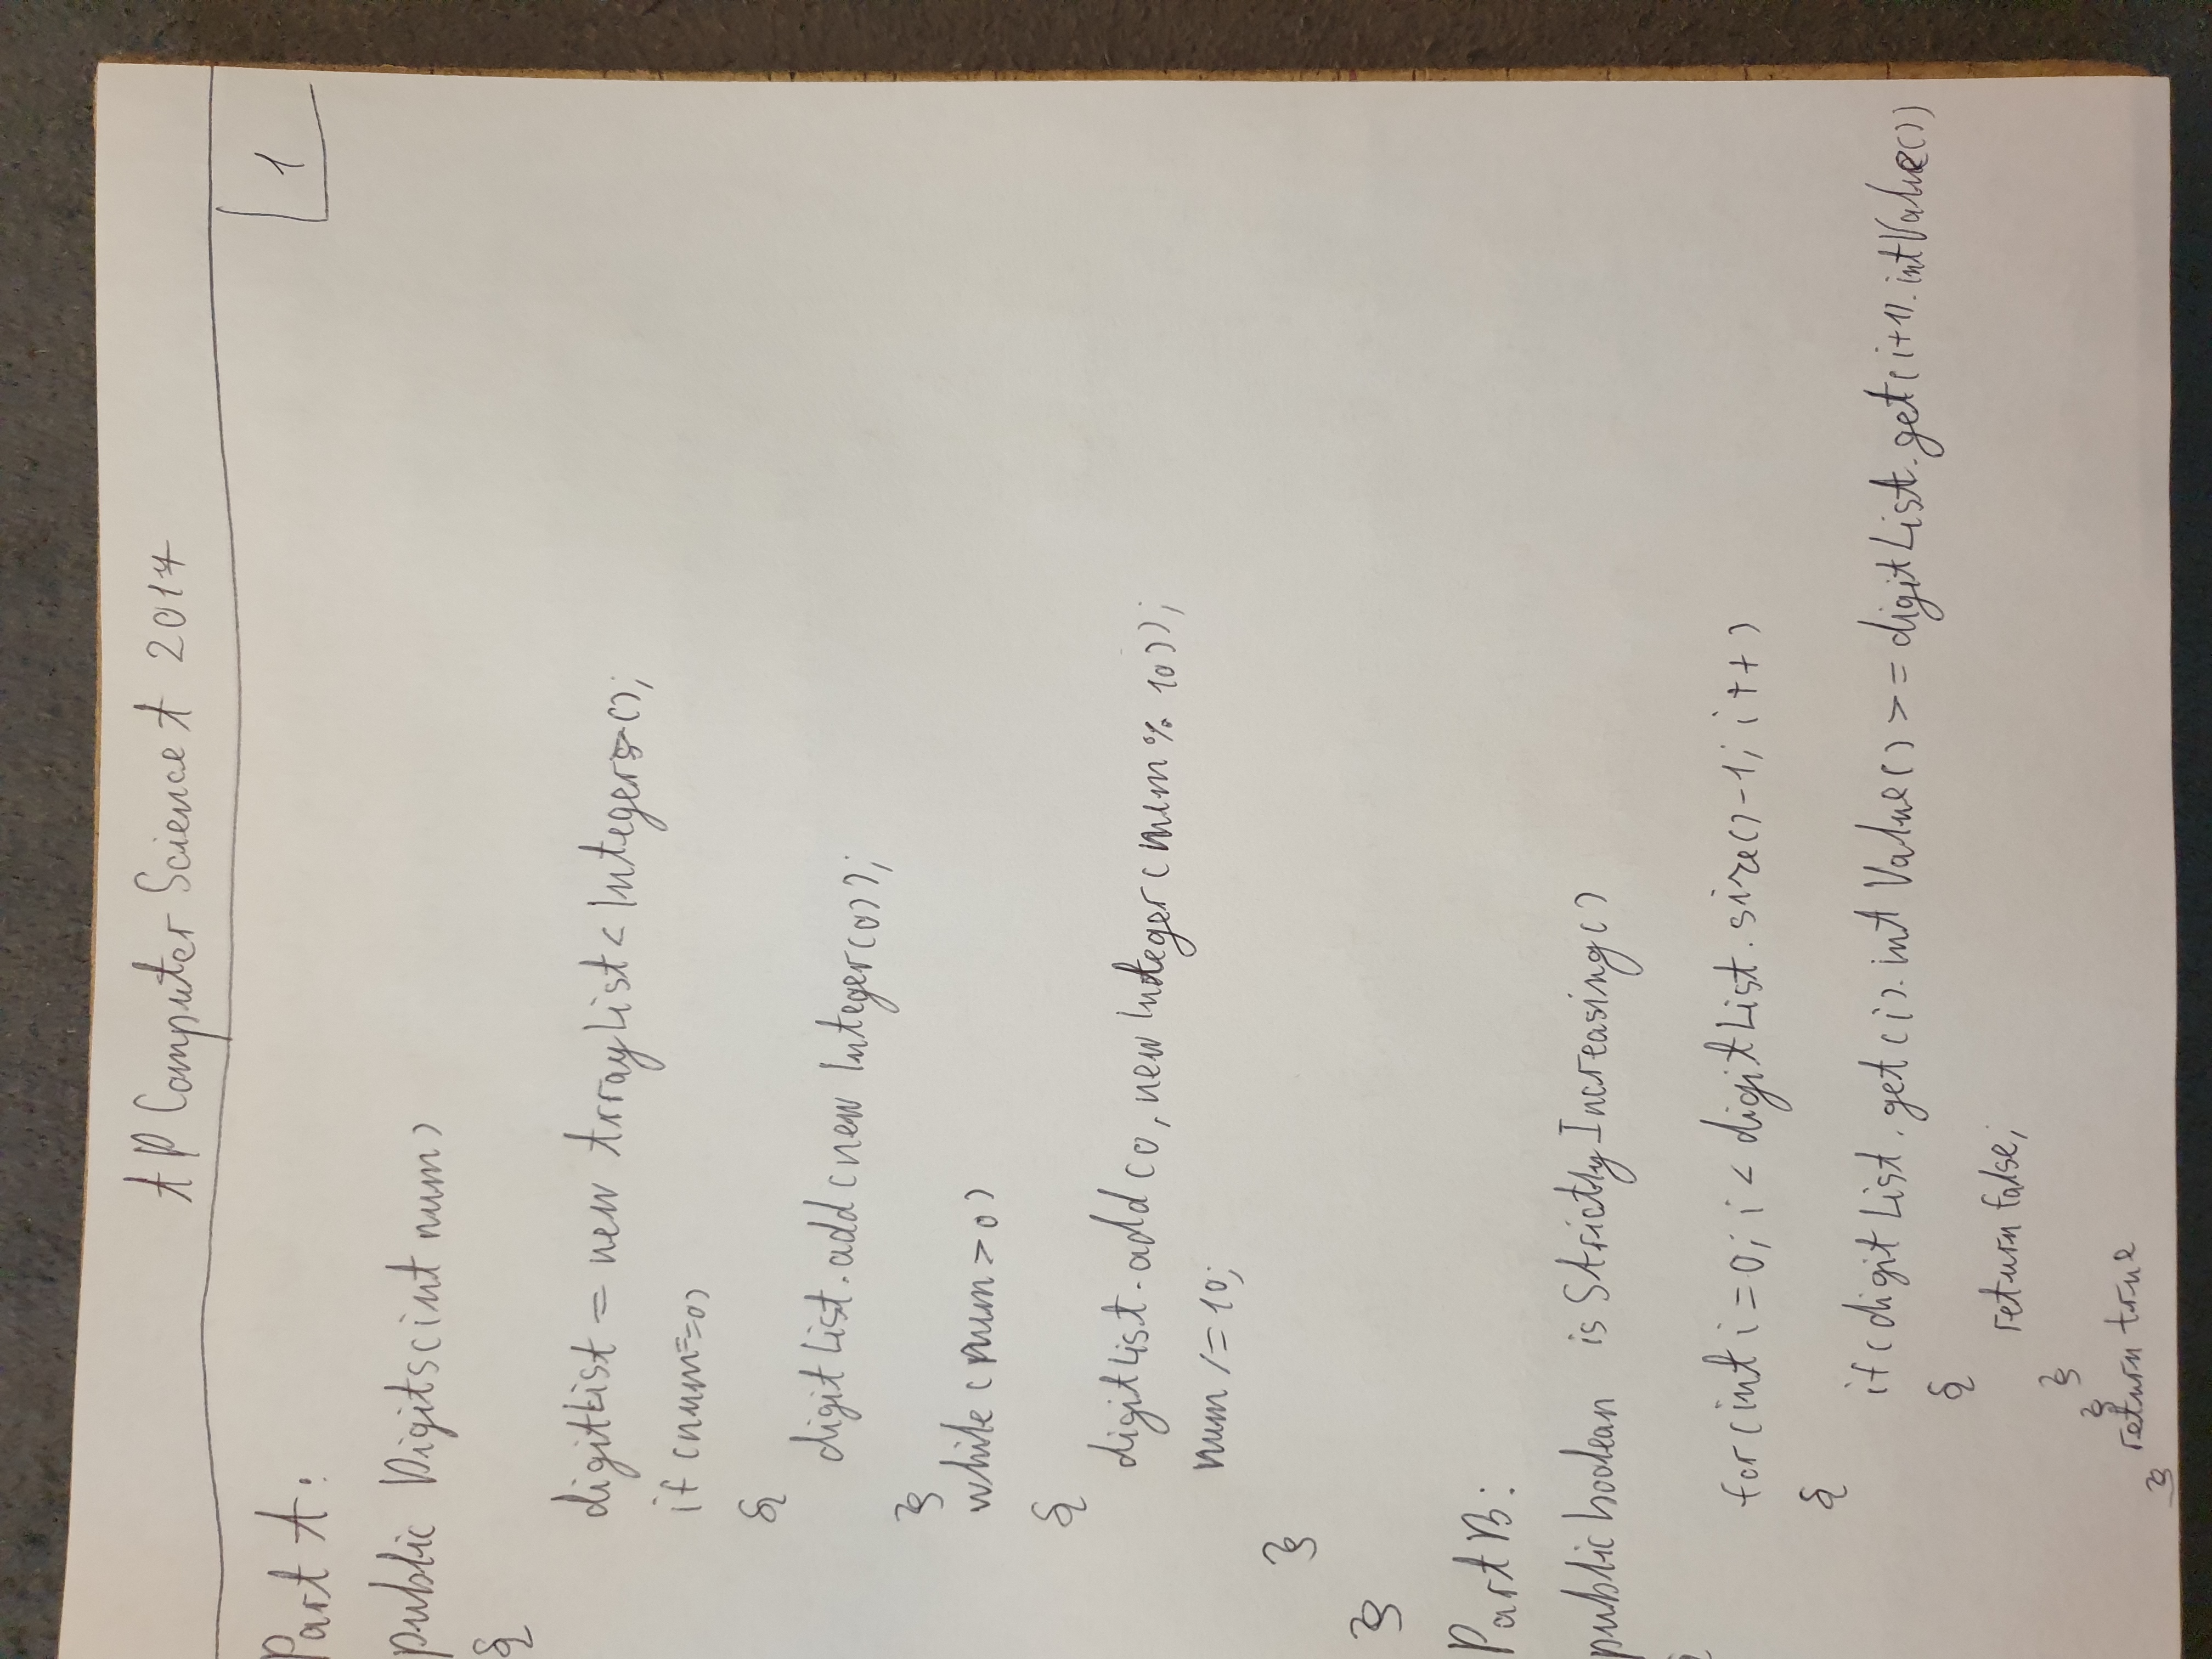 AP Computer Science A 2017
1
Part A:
public Digits(int num)
{
digitList = new ArrayList<Integer>();
if (num==0)
{
digitList.add(new Integer(0));
}
while (num > 0)
{
digitList.add(0, new Integer(num % 10));
num /= 10;
}
}
Part B:
public boolean isStrictlyIncreasing()
{
for(int i = 0; i < digitList.size()-1; i++)
{
if(digitList.get(i).intValue() >= digitList.get(i+1).intValue())
{
return false;
}
}
return true
}